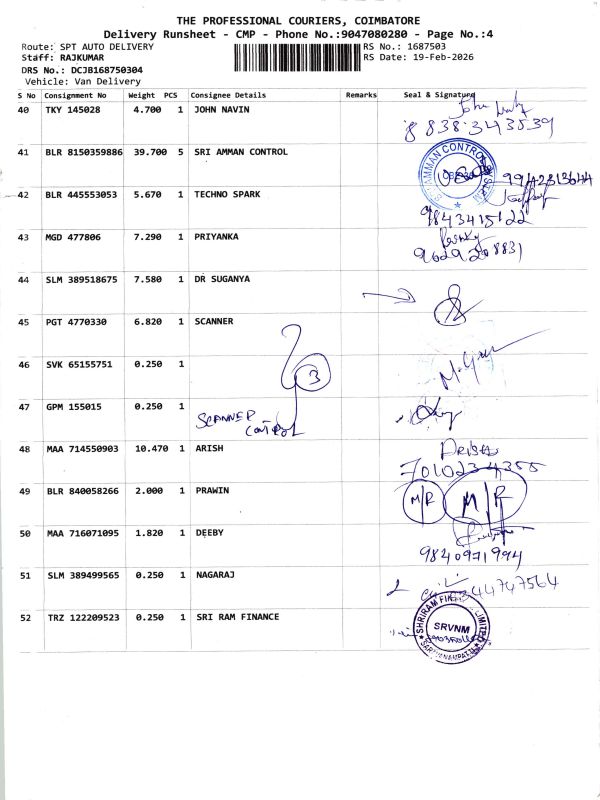 THE PROFESSIONAL COURIERS, COIMBATORE
Delivery Runsheet - CMP - Phone No.:9047080280 - Page No.:4
Route: SPT AUTO DELIVERY
Staff: RAJKUMAR
DRS No.: DCJB168750304
Vehicle: Van Delivery
RS No.: 1687503
RS Date: 19-Feb-2026
S No Consignment No Weight PCS Consignee Details Remarks Seal & Signature
40 TKY 145028 4.700 1 JOHN NAVIN
8838343539
41 BLR 8150359886 39.700 5 SRI AMMAN CONTROL
42 BLR 445553053 5.670 1 TECHNO SPARK
9843415122
43 MGD 477806 7.290 1 PRIYANKA
9629208831
44 SLM 389518675 7.580 1 DR SUGANYA
45 PGT 4770330 6.820 1 SCANNER
46 SVK 65155751 0.250 1
3
47 GPM 155015 0.250 1
SCANNER
CONTROL
48 MAA 714550903 10.470 1 ARISH
7010234355
49 BLR 840058266 2.000 1 PRAWIN
M/R M/R
50 MAA 716071095 1.820 1 DEEBY
9840971994
51 SLM 389499565 0.250 1 NAGARAJ
52 TRZ 122209523 0.250 1 SRI RAM FINANCE
SHRIRAM FINANCE LIMITED
SRVNM
SARAVANAMPATTI